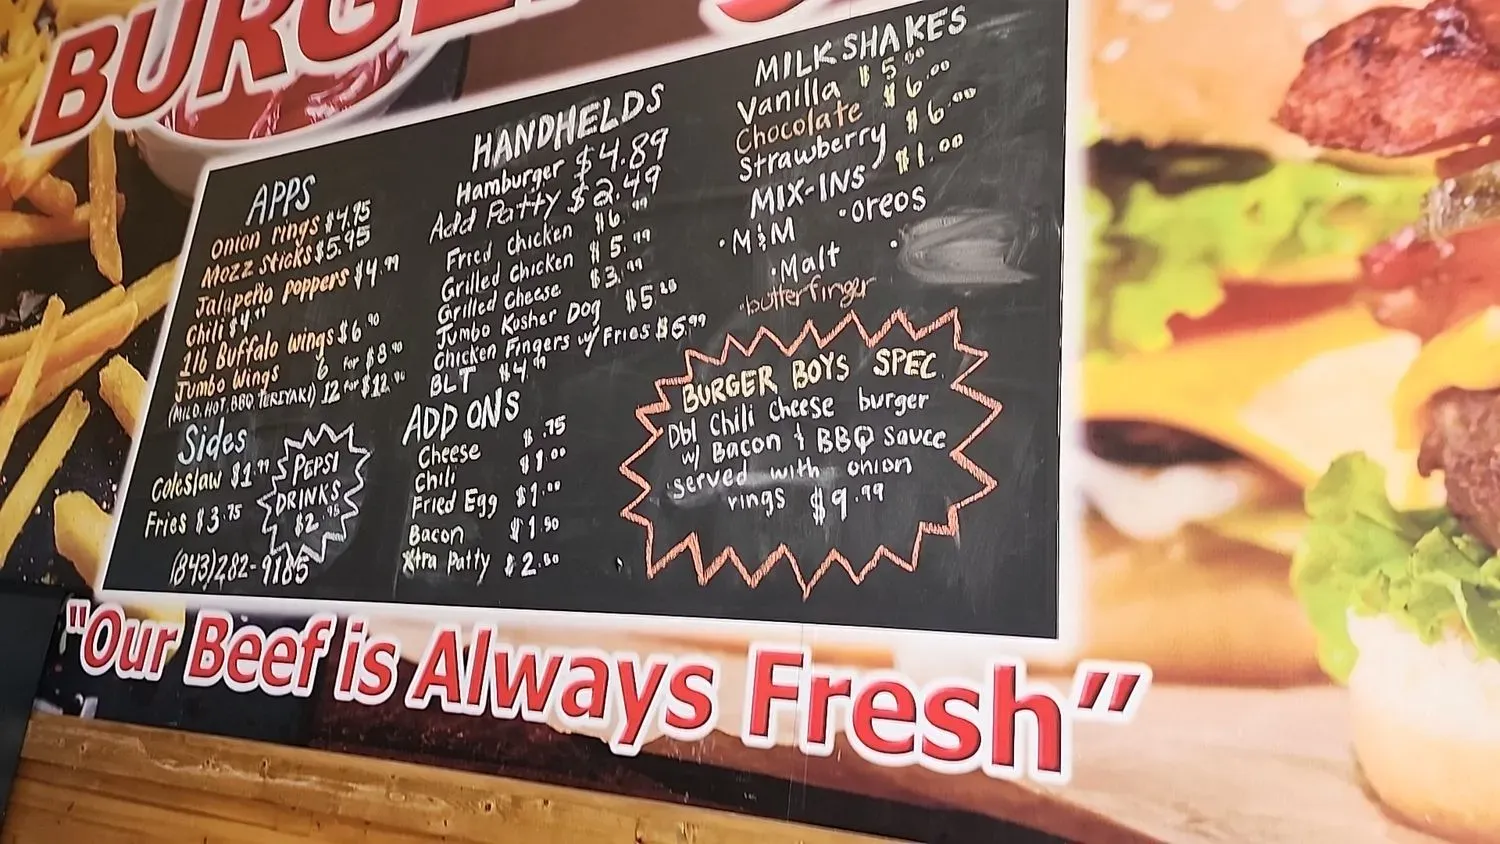 BURGER
APPS
Onion rings $4.95
Mozz Sticks $5.95
Jalapeño poppers $4.99
Chili $4.99
1lb Buffalo wings $6.90
Jumbo Wings 6 for $8.90
(MILD, HOT, BBQ, TERIYAKI) 12 for $12.90
Sides
Coleslaw $1.99
Fries $3.75
PEPSI
DRINKS
$2.
(843)282-9185
HANDHELDS
Hamburger $4.89
Add Patty $2.49
Fried Chicken $6.99
Grilled Chicken $5.99
Grilled Cheese $3.99
Jumbo Kosher Dog $5.20
Chicken Fingers w/ Fries $6.99
BLT $4.99
ADD ONS
Cheese $.75
Chili $1.00
Fried Egg $1.00
Bacon $1.50
Xtra Patty $2.50
MILKSHAKES
Vanilla $5.00
Chocolate $6.00
Strawberry $6.00
MIX-INS $1.00
•M&M •OREOS
•Malt •
•butterfinger
BURGER BOYS SPEC
Dbl Chili Cheese burger
w/ Bacon & BBQ Sauce
served with onion
rings $9.99
"Our Beef is Always Fresh"